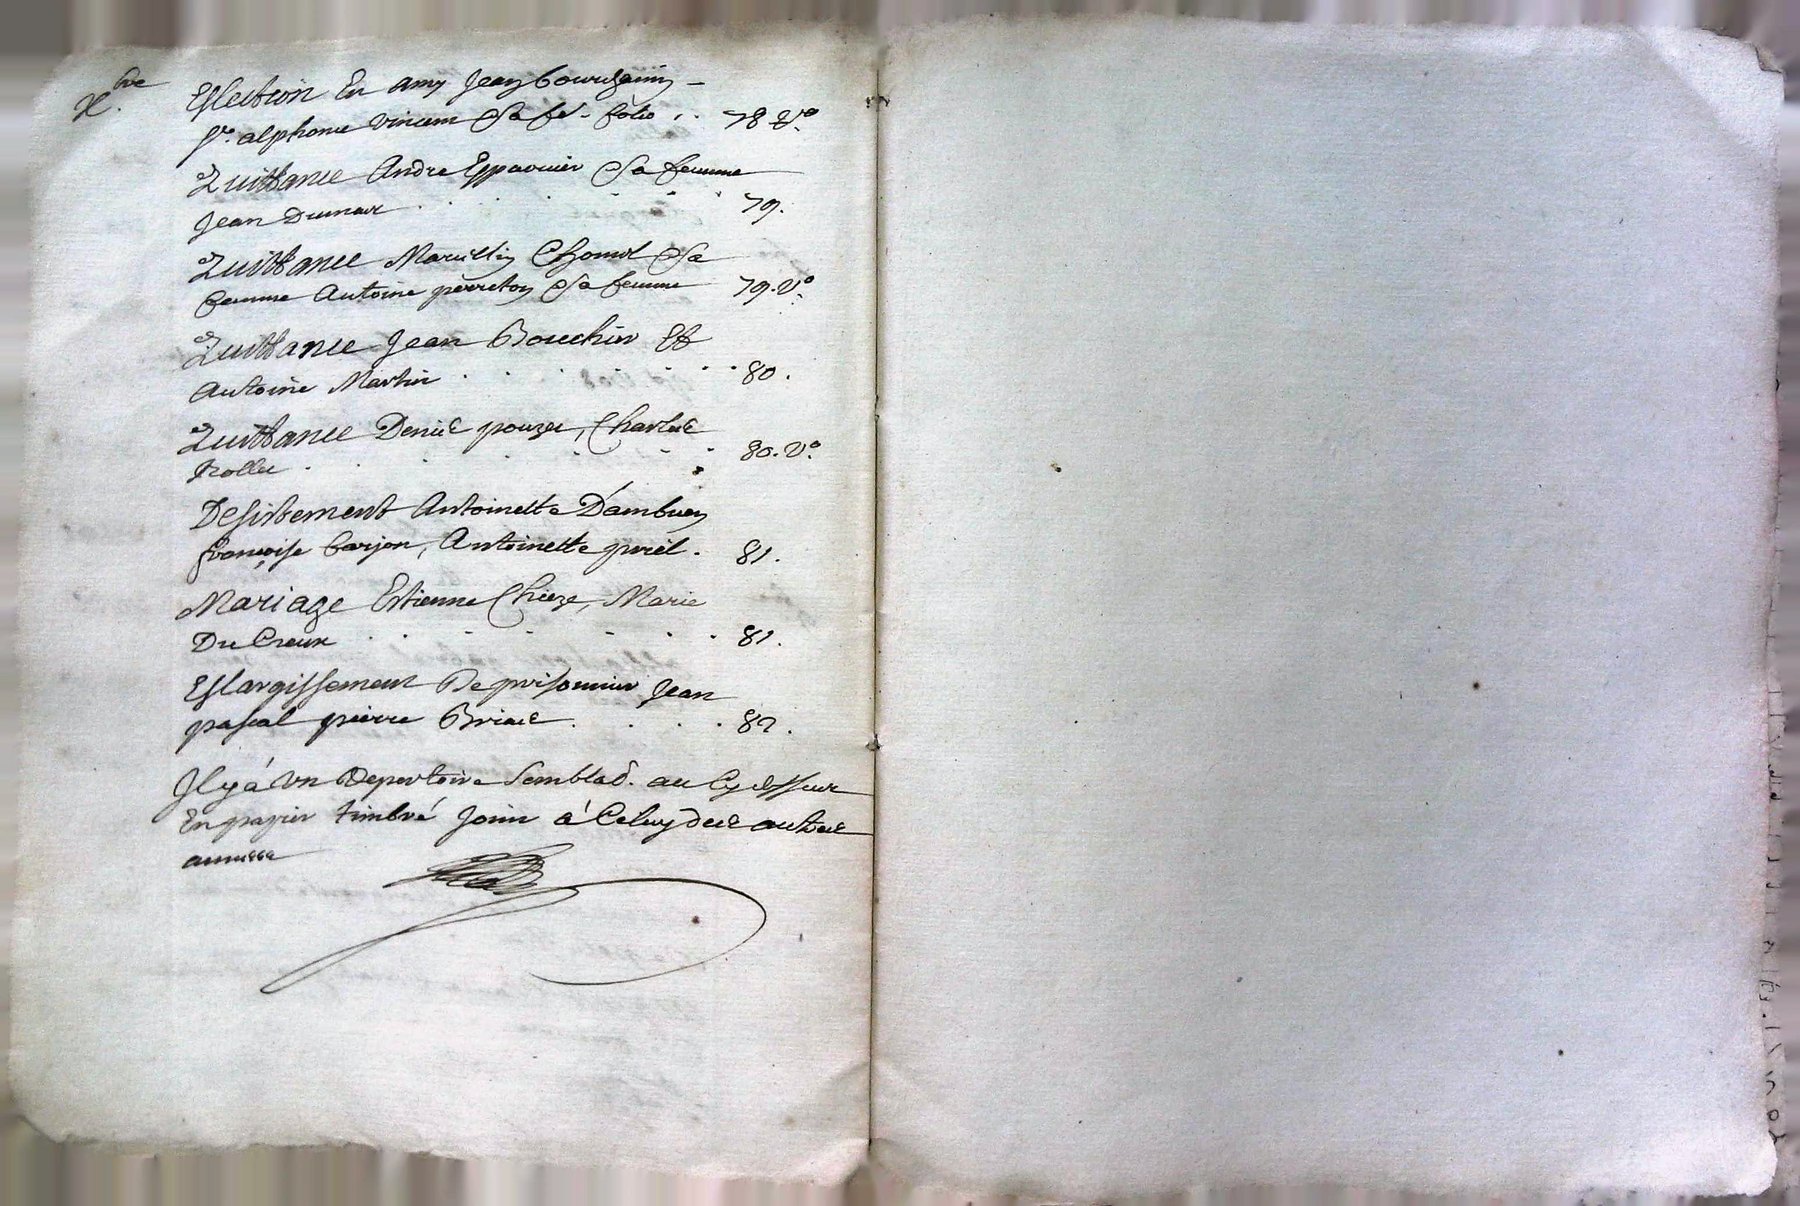 Xbre
Eslection En amy Jean bourgain
Sr. alphonse vincent & sa fe. folio . . 78 Vo.
Quittance Andre Espaonier & sa femme
Jean Dumas . . . . . . 79.
Quittance Marcellin Chomel & sa
femme Antoine perreton & sa femme 79. Vo.
Quittance Jean Bouchin Et
Antoine Martin . . . . . . . 80.
Quittance Denis pouze, Charles
. . . . . . 80. Vo.
Desistement Antoinette Dambuen
françoise barjon, Antoinette priel. 81.
Mariage Estienne Chieze, Marie
Du Creux . . . . . . 81.
Eslargissement De prisonnier Jean
pascal pierre Briac . . . . 82.
Il y á Un Repertoire Semblab. au Cy dessus
En papier timbré Joint á Celuy des autres
annees